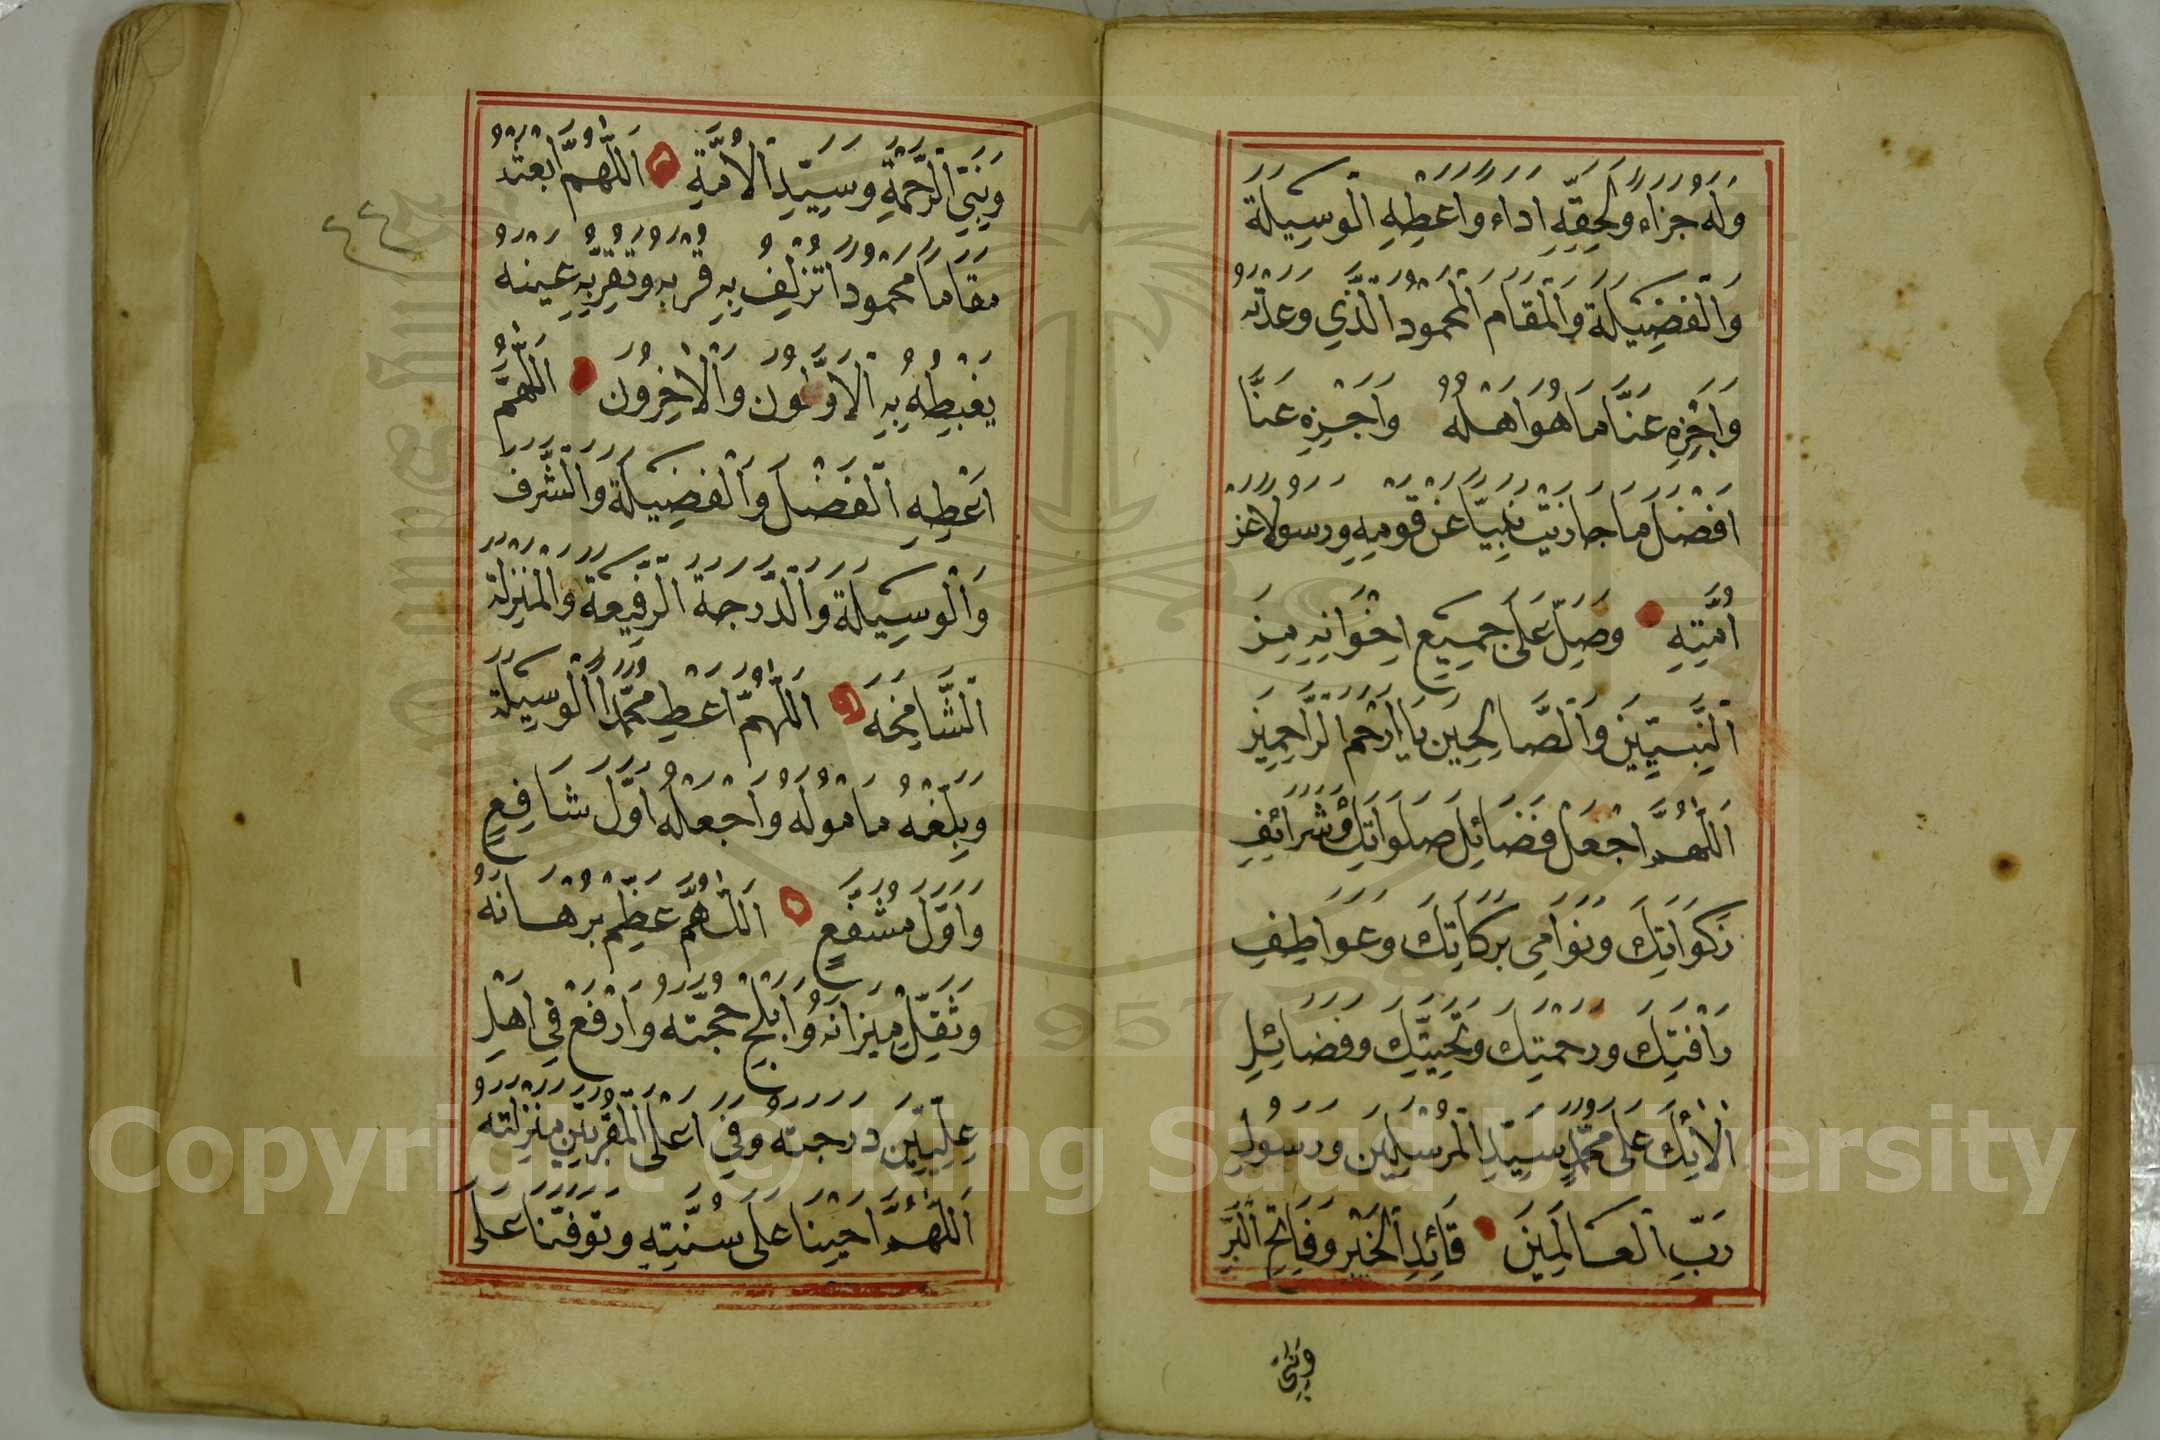 وَلَهُ جَزَاء وَلِحَقِّهِ اَدَاء وَاَعْطِهِ الْوَسِيلَةَ
وَالْفَضِيلَةَ وَالْمَقَامَ الْمَحْمُودَ الَّذِي وَعَدْتَهُ
وَاجْزِهِ عَنَّا مَا هُوَ اَهْلُهُ وَاَجْزِهِ عَنَّا
اَفْضَلَ مَا جَازَيْتَ نَبِيًّا عَنْ قَوْمِهِ وَرَسُولًا عَنْ
اُمَّتِهِ وَصَلِّ عَلَى جَمِيعِ اِخْوَانِهِ مِنَ
النَّبِيِّينَ وَالصَّالِحِينَ يَا اَرْحَمَ الرَّاحِمِينَ
اَللّٰهُمَّ اجْعَلْ فَضَائِلَ صَلَوَاتِكَ وَشَرَائِفَ
زَكَوَاتِكَ وَنَوَامِيَ بَرَكَاتِكَ وَعَوَاطِفَ
رَاْفَتِكَ وَرَحْمَتِكَ وَتَحِيَّتِكَ وَفَضَائِلَ
اٰلَائِكَ عَلَى مُحَمَّدٍ سَيِّدِ الْمُرْسَلِينَ وَرَسُولِ
رَبِّ الْعَالَمِينَ قَائِدِ الْخَيْرِ وَفَاتِحِ الْبِرِّ
وَنَبِيِّ
وَنَبِيِّ الرَّحْمَةِ وَسَيِّدِ الْاُمَّةِ اَللّٰهُمَّ ابْعَثْهُ
مَقَامًا مَحْمُودًا تُزْلِفُ بِهِ قُرْبَهُ وَتُقِرُّ بِهِ عَيْنَهُ
يَغْبِطُهُ بِهِ الْاَوَّلُونَ وَالْاٰخِرُونَ اَللّٰهُمَّ
اَعْطِهِ الْفَضْلَ وَالْفَضِيلَةَ وَالشَّرَفَ
وَالْوَسِيلَةَ وَالدَّرَجَةَ الرَّفِيعَةَ وَالْمَنْزِلَةَ
الشَّامِخَةَ اَللّٰهُمَّ اَعْطِ مُحَمَّدًا الْوَسِيلَةَ
وَبَلِّغْهُ مَامُولَهُ وَاجْعَلْهُ اَوَّلَ شَافِعٍ
وَاَوَّلَ مُشَفَّعٍ اَللّٰهُمَّ عَظِّمْ بُرْهَانَهُ
وَثَقِّلْ مِيزَانَهُ وَاَبْلِجْ حُجَّتَهُ وَارْفَعْ فِي اَهْلِ
عِلِّيِّينَ دَرَجَتَهُ وَفِي اَعْلَى الْمُقَرَّبِينَ مَنْزِلَتَهُ
اَللّٰهُمَّ اَحْيِنَا عَلَى سُنَّتِهِ وَتَوَفَّنَا عَلَى
٤٤
Copyright © King Saud University
1957